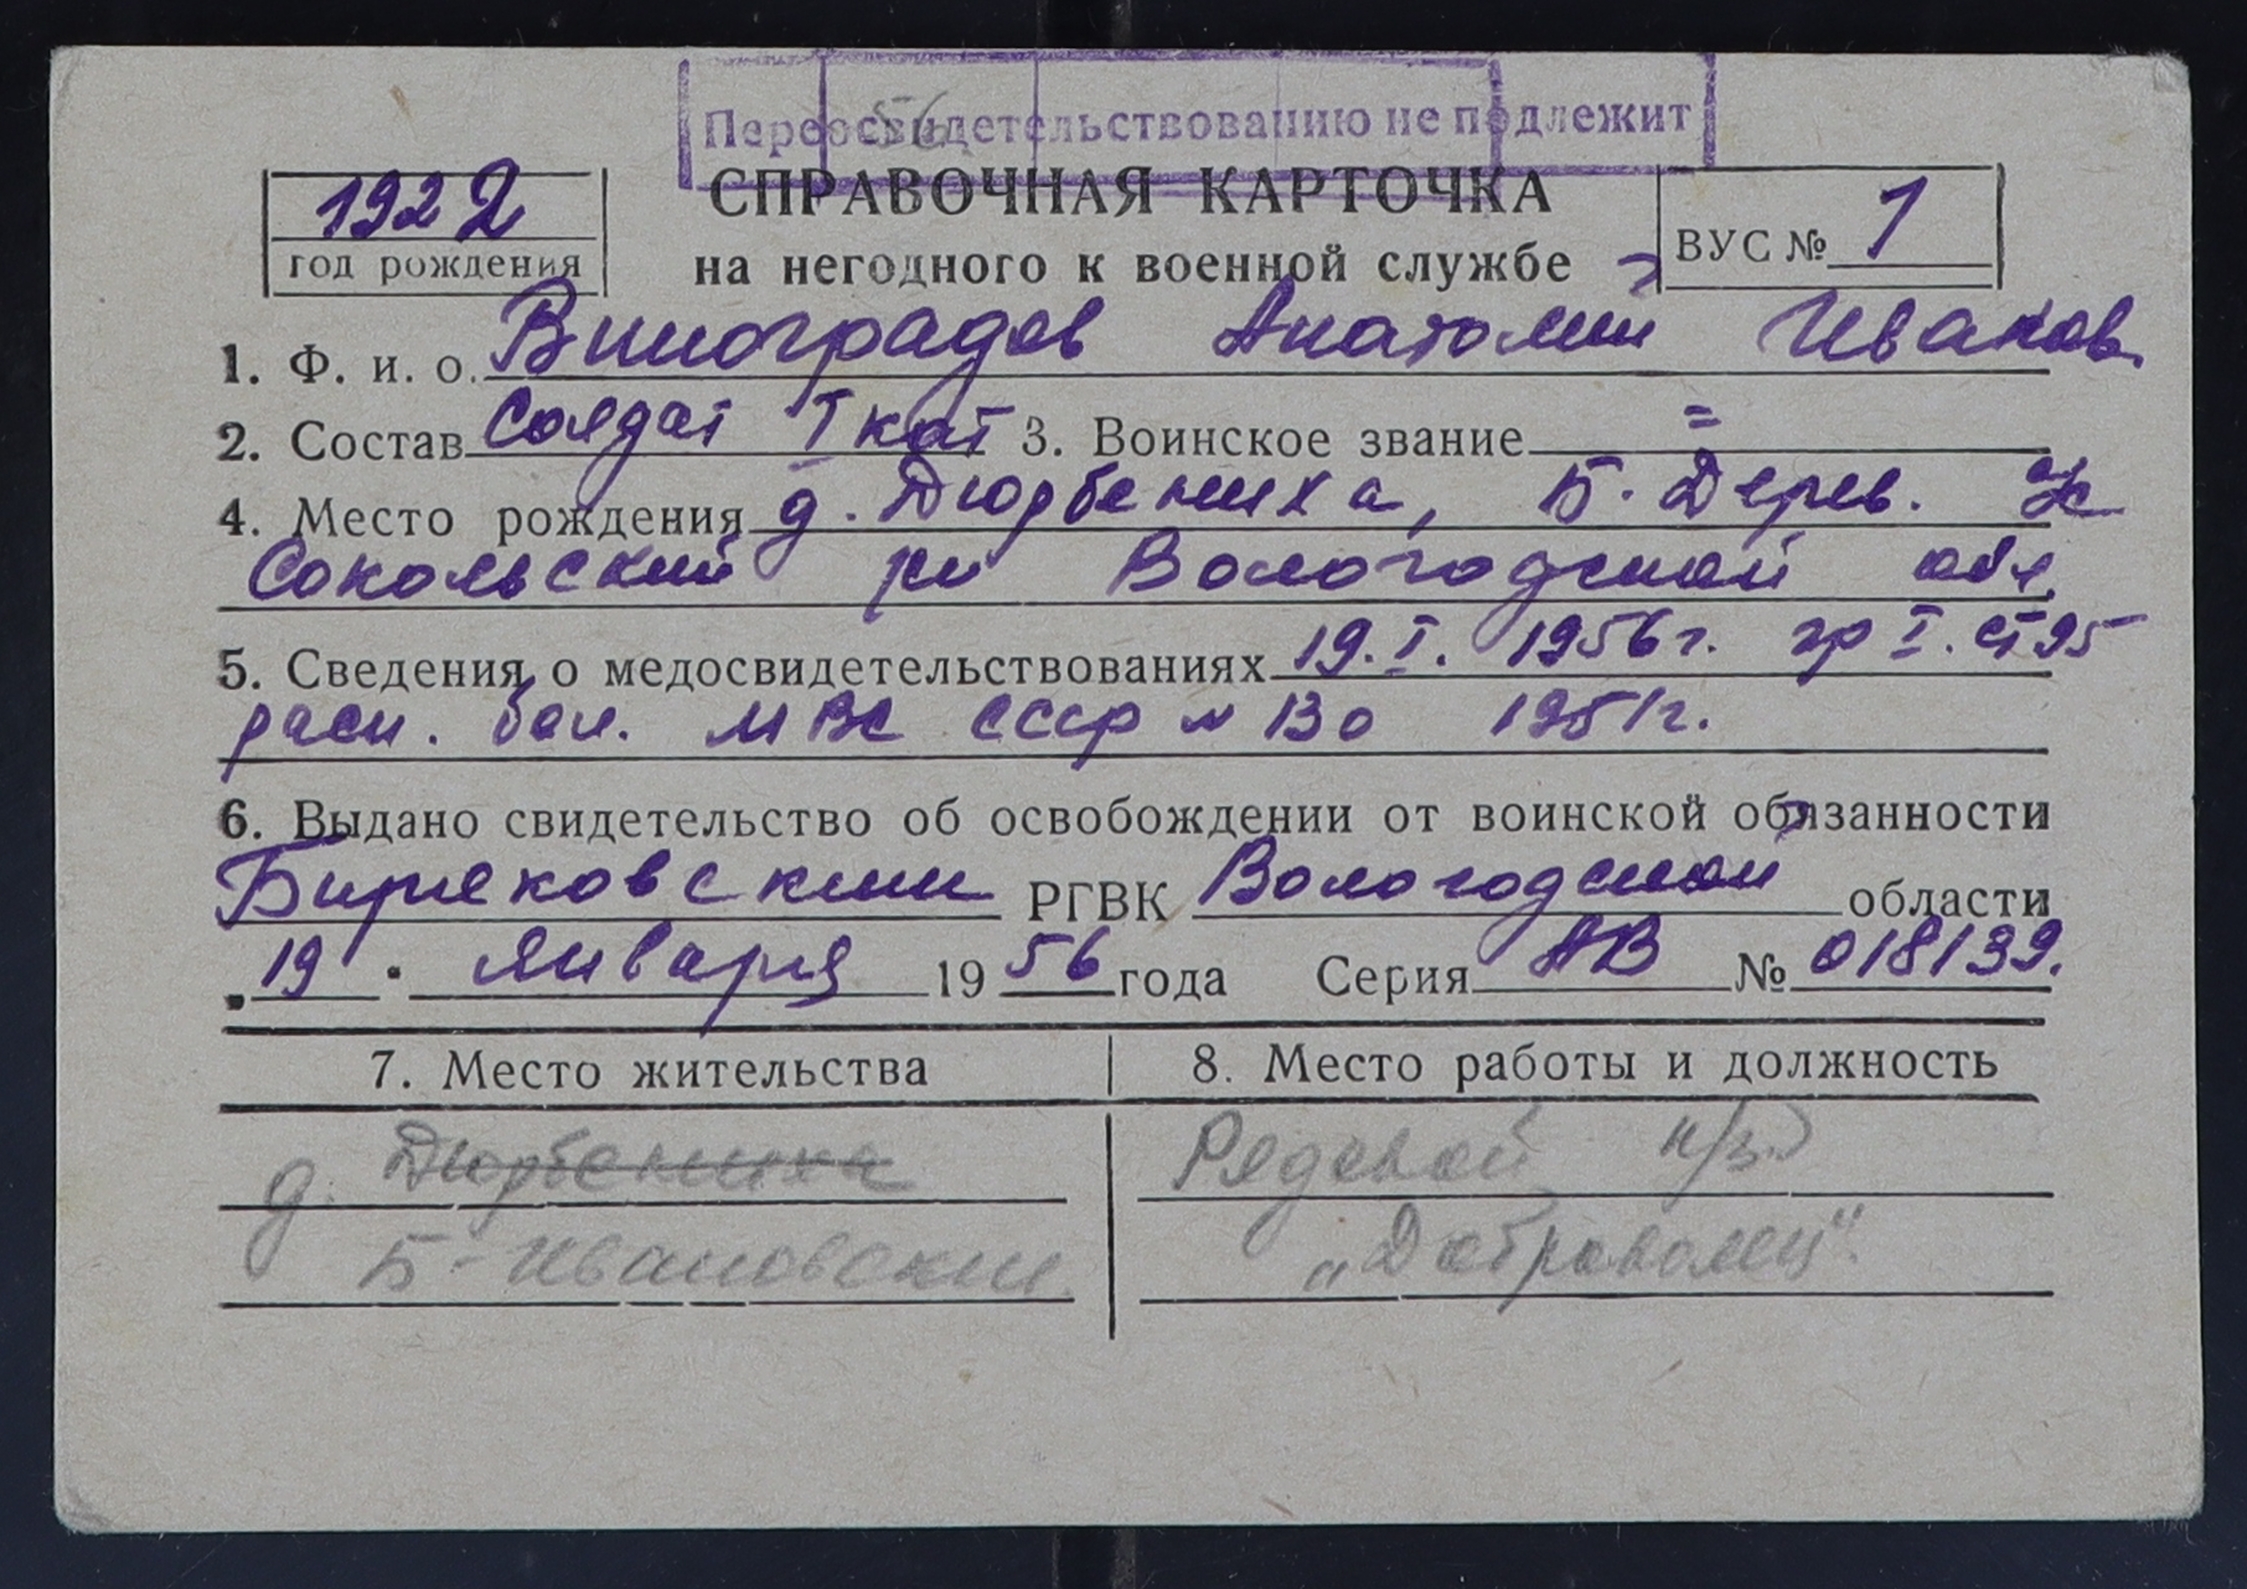 Переосвидетельствованию не подлежит
56
1922
год рождения
СПРАВОЧНАЯ КАРТОЧКА
на негодного к военной службе
ВУС № 1
1. Ф. и. о. Виноградов Анатолий Иванов.
2. Состав Солдат I кат 3. Воинское звание =
4. Место рождения д. Дюрбениха, Б. Дерев.
Сокольский рн Вологодской обл.
5. Сведения о медосвидетельствованиях 19. I. 1956 г. гр I. ст 95
расп. бол. МВС СССР № 130 1951 г.
6. Выдано свидетельство об освобождении от воинской обязанности
Биряковским РГВК Вологодской области
„19" января 1956 года Серия АВ № 018139.
7. Место жительства 8. Место работы и должность
д. Дюрбениха Рядовой
Б-Ивановский „Доброволец"